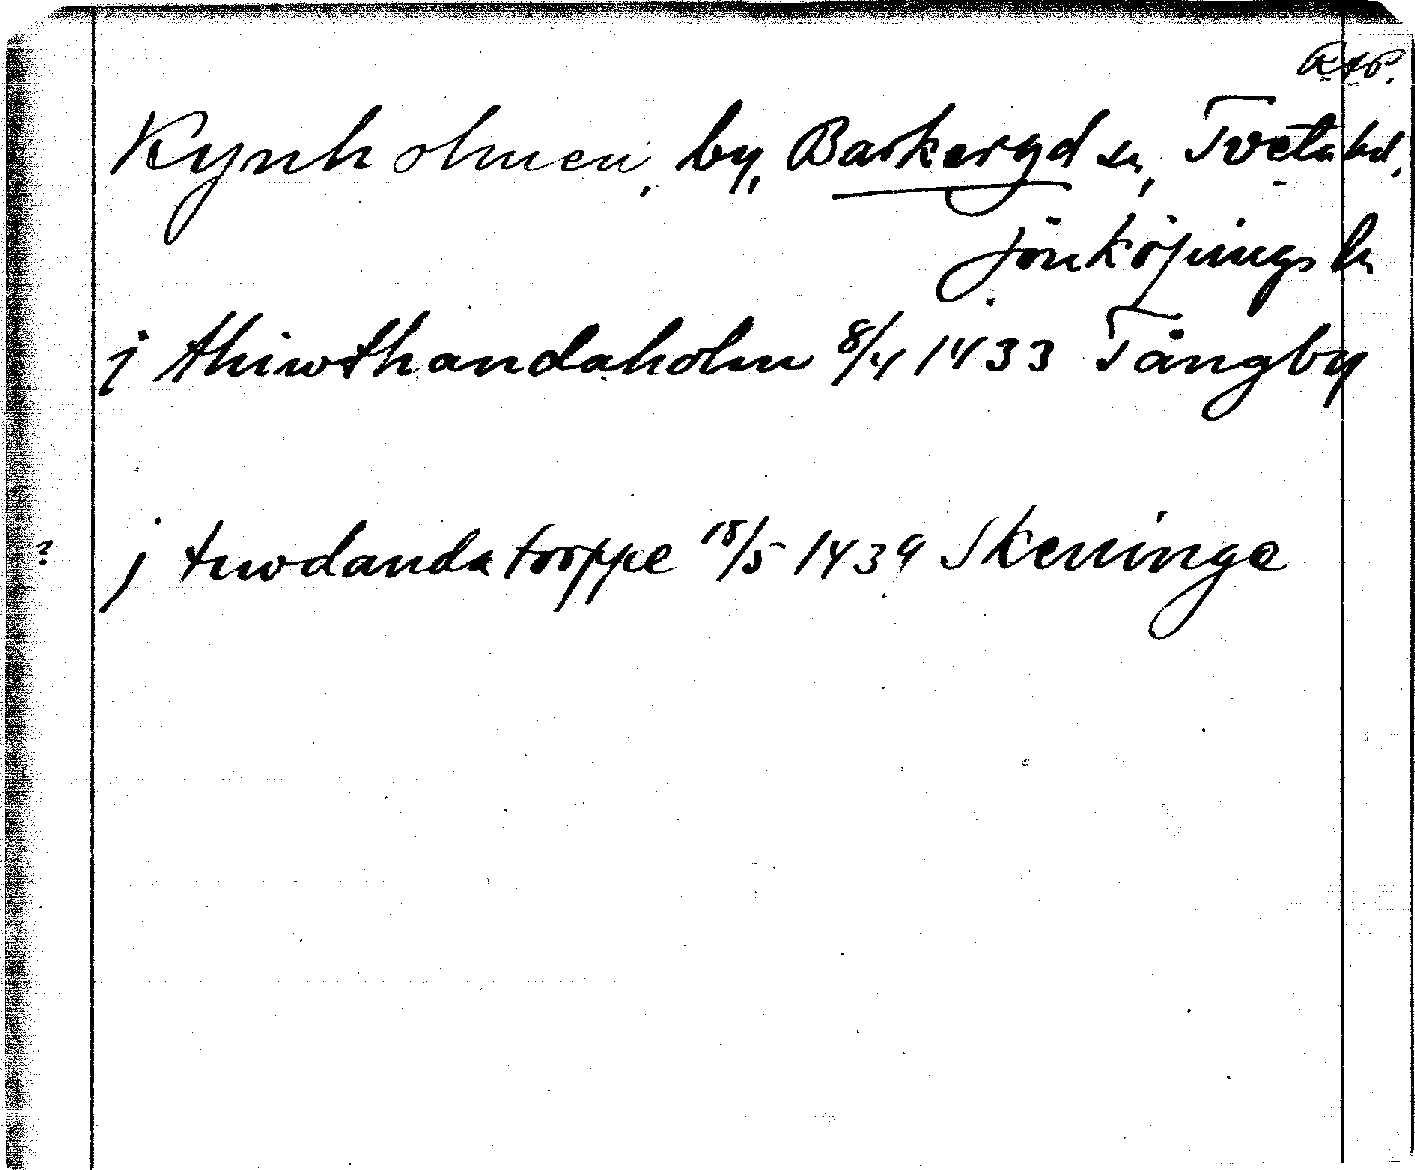 RAP.
Kynholmen, by, Barkeryd sn, Tveta hd,
Jönköpings ln
j thiwthandaholm 8/4 1433 Tångby
? j tuwdanda torppe 18/5 1439 Skeninge